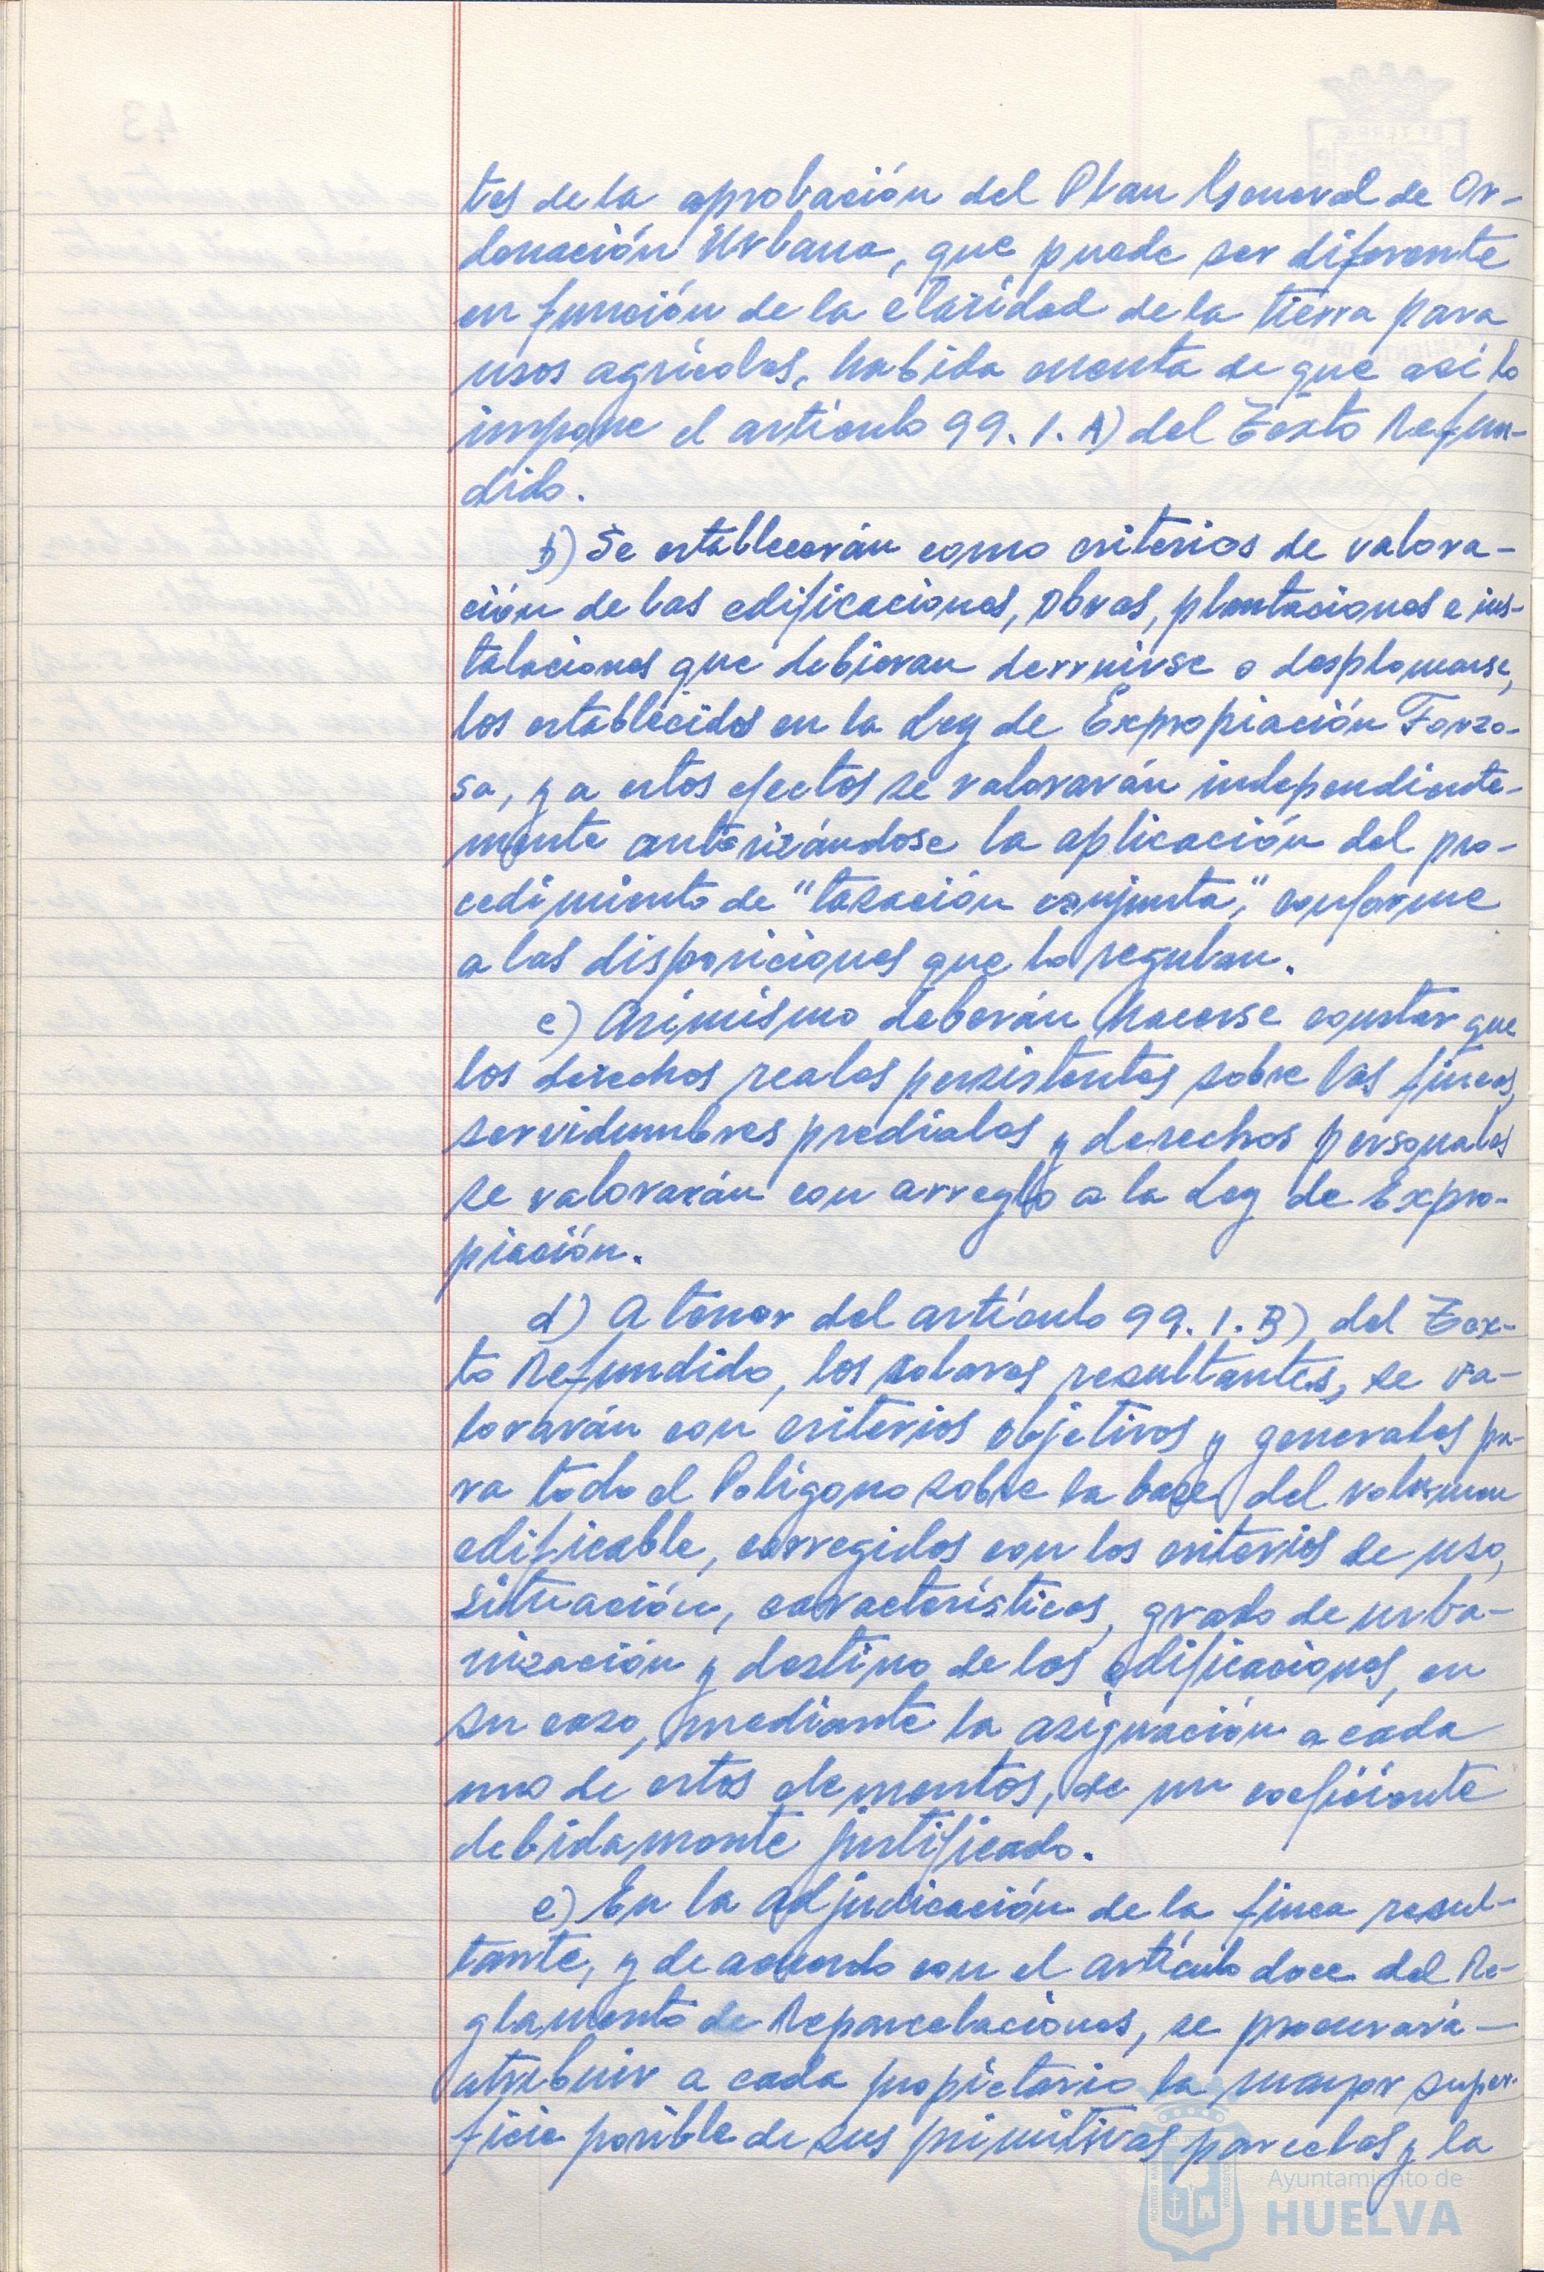 tes de la aprobación del Plan General de Or-
denación Urbana, que puede ser diferente
en función de la claridad de la tierra para
usos agrícolas, habida cuenta de que así lo
impone el artículo 99.1.A) del Texto Refun-
dido.
b) Se establecerán como criterios de valora-
ción de las edificaciones, obras, plantaciones e ins-
talaciones que debieran derruirse o desplomarse,
los establecidos en la Ley de Expropiación Forzo-
sa, y a estos efectos se valorarán independiente-
mente autorizándose la aplicación del pro-
cedimiento de "tasación conjunta", conforme
a las disposiciones que lo regulan.
c) Asimismo deberán hacerse constar que
los derechos reales persistentes sobre las fincas,
servidumbres prediales y derechos personales
se valorarán con arreglo a la Ley de Expro-
piación.
d) A tenor del artículo 99.1.B) del Tex-
to Refundido, los solares resultantes, se va-
lorarán con criterios objetivos y generales pa-
ra todo el Polígono sobre la base del volumen
edificable, corregidos con los criterios de uso,
situación, características, grado de urba-
nización y destino de las edificaciones, en
su caso, mediante la asignación a cada
uno de estos elementos, de un coeficiente
debidamente justificado.
e) En la adjudicación de la finca resul-
tante, y de acuerdo con el artículo doce del Re-
glamento de Reparcelaciones, se procurará—
atribuir a cada propietario la mayor super-
ficie posible de sus primitivas parcelas y la
Ayuntamiento de
HUELVA